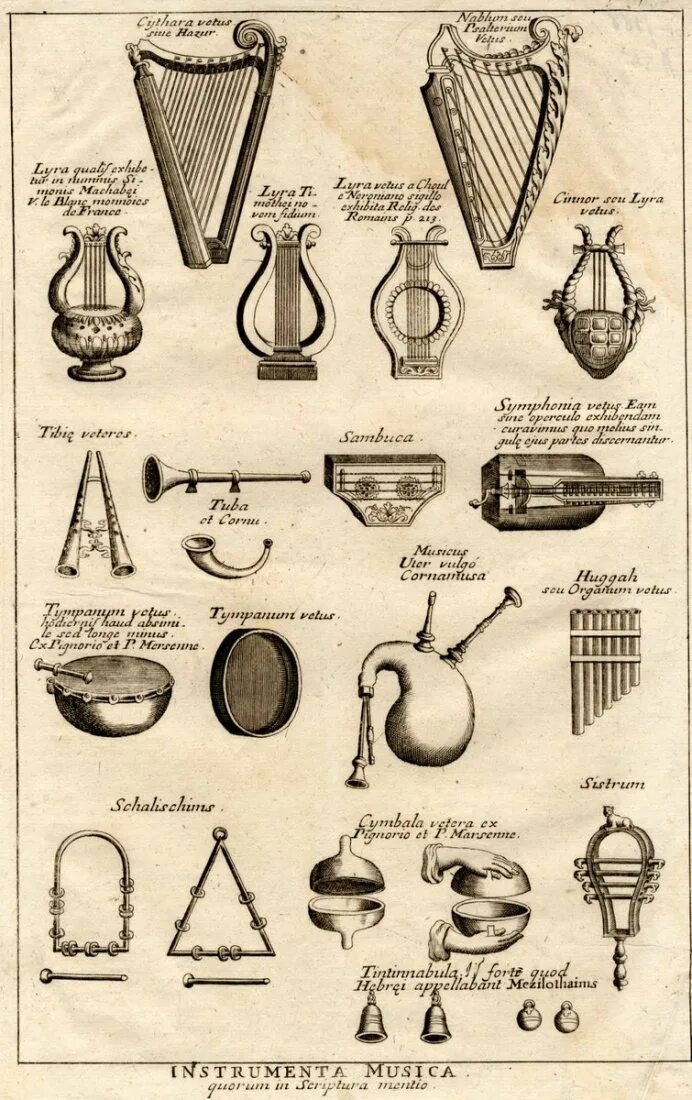 Cythara vetus
siue Hazur.
Nablum seu
Psalterium
Vetus.
Lyra qualis exhibe-
tur in nummis Si-
monis Machabei
V. le Blanc monnoies
de France.
Lyra Ti-
mothei no-
vem fidium.
Lyra vetus a Choul
e Neroniano sigillo
exhibita Relig. des
Romains p. 213.
Cinnor seu Lyra
vetus.
Tibię veteres.
Tuba
et Cornu.
Sambuca.
Symphonia vetus Eam
sine operculo exhibendam
curavimus quo melius sin-
gulę ejus partes discernantur.
Tympanum vetus.
hodiernis haud absimi-
le sed longe minus.
Ex Pignorio et P. Mersenne.
Tympanum vetus.
Musicus
Uter vulgò
Cornamusa
Huggah
seu Organum vetus.
Schalischims.
Cymbala vetera ex
Pignorio et P. Marsenne.
Sistrum
Tintinnabula forte quod
Hebręi appellabant Mezilothaims
INSTRUMENTA MUSICA.
quorum in Scriptura mentio.